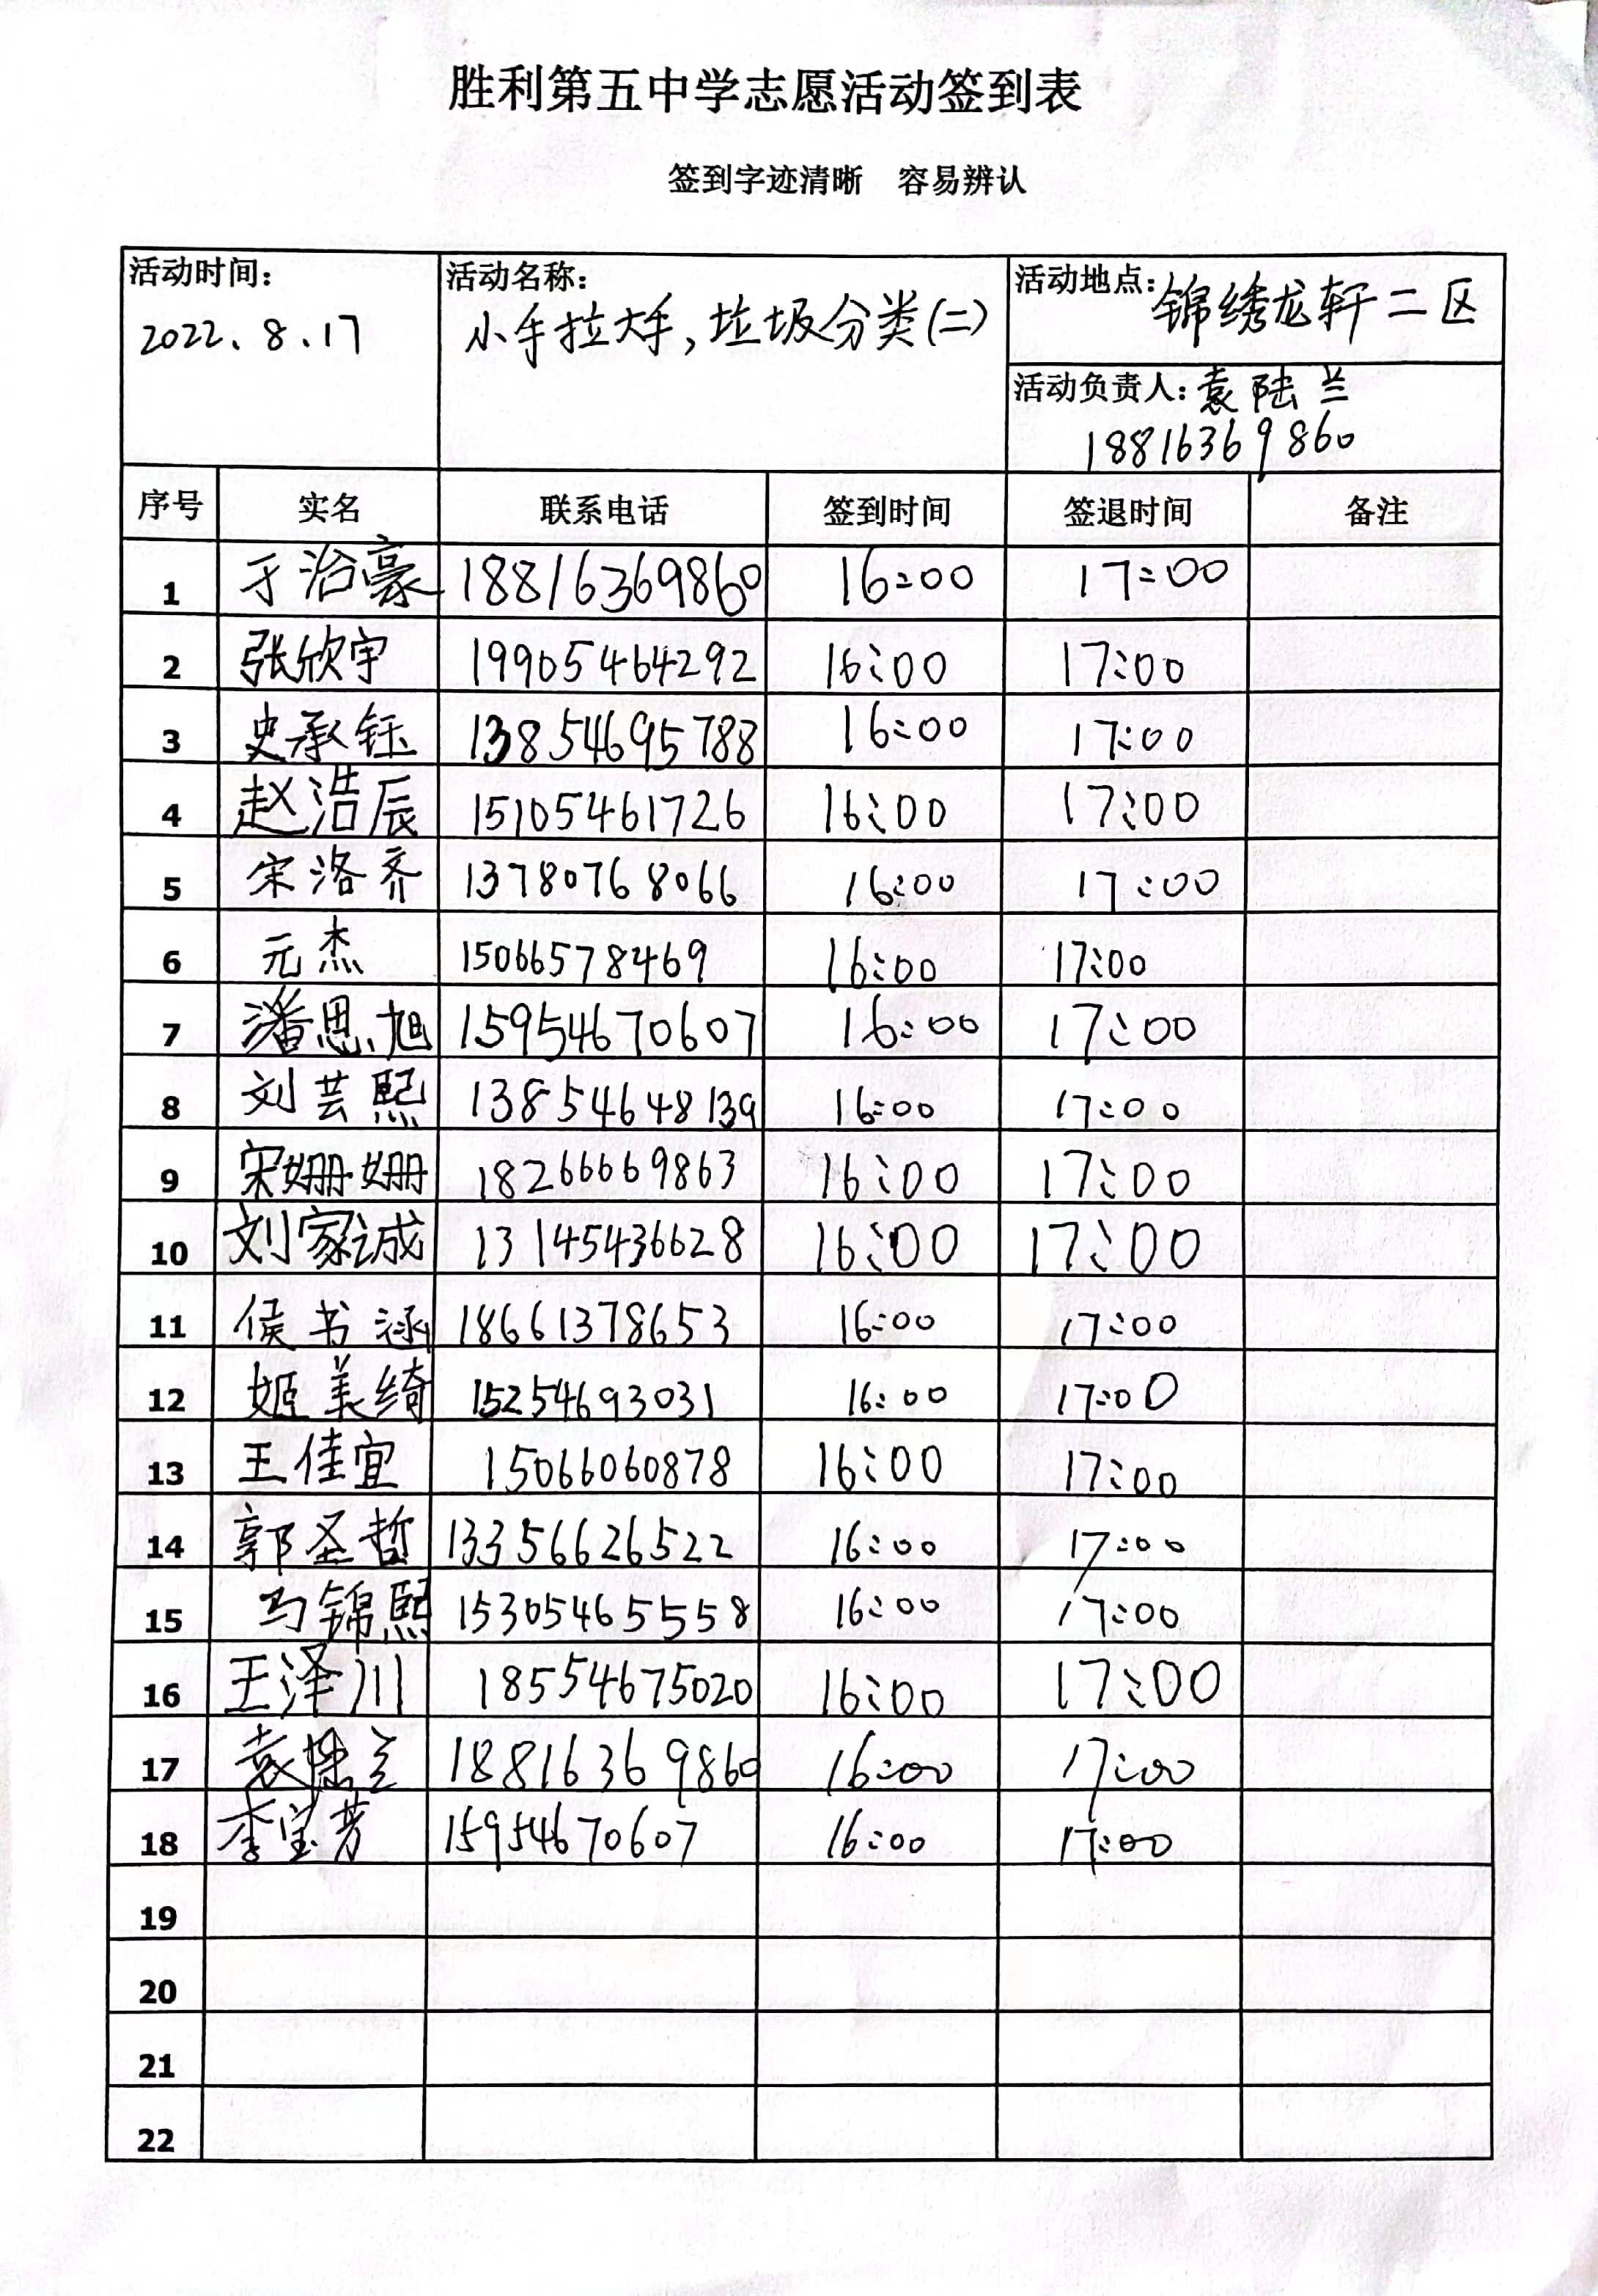 胜利第五中学志愿活动签到表
签到字迹清晰 容易辨认
活动时间: 活动名称: 活动地点: 锦绣龙轩二区
2022.8.17 小手拉大手,垃圾分类(二)
活动负责人: 袁陆兰
18816369860
序号 实名 联系电话 签到时间 签退时间 备注
1 于治豪 18816369860 16:00 17:00
2 张欣宇 19905464292 16:00 17:00
3 史承钰 13854695788 16:00 17:00
4 赵浩辰 15105461726 16:00 17:00
5 宋洛齐 13780768066 16:00 17:00
6 元杰 15066578469 16:00 17:00
7 潘思旭 15954670607 16:00 17:00
8 刘芸熙 13854648139 16:00 17:00
9 宋姗姗 18266669863 16:00 17:00
10 刘家诚 13145436628 16:00 17:00
11 侯书涵 18661378653 16:00 17:00
12 姬美绮 15254693031 16:00 17:00
13 王佳宜 15066060878 16:00 17:00
14 郭圣哲 13356626522 16:00 17:00
15 马锦熙 15305465558 16:00 17:00
16 王泽川 18554675020 16:00 17:00
17 袁陆兰 18816369860 16:00 17:00
18 李宝芳 15954670607 16:00 17:00
19
20
21
22